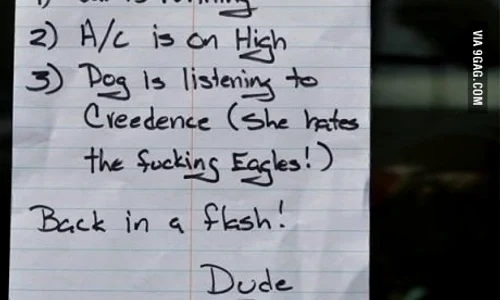 2) A/C is on High
3) Dog is listening to
Creedence (she hates
the fucking Eagles!)
Back in a flash!
Dude
VIA 9GAG.COM